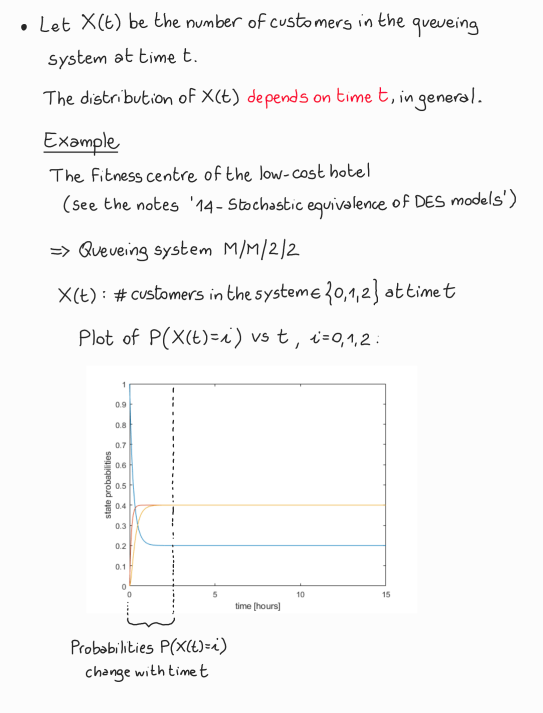 • Let X(t) be the number of customers in the queueing
system at time t.
The distribution of X(t) depends on time t, in general.
Example
The Fitness centre of the low-cost hotel
(see the notes '14 - Stochastic equivalence of DES models')
=> Queueing system M/M/2/2
X(t) : # customers in the system ∈ {0,1,2} at time t
Plot of P(X(t)=i) vs t , i=0,1,2 :
1
0.9
0.8
0.7
0.6
0.5
0.4
0.3
0.2
0.1
0
state probabilities
0 5 10 15
time [hours]
Probabilities P(X(t)=i)
change with time t